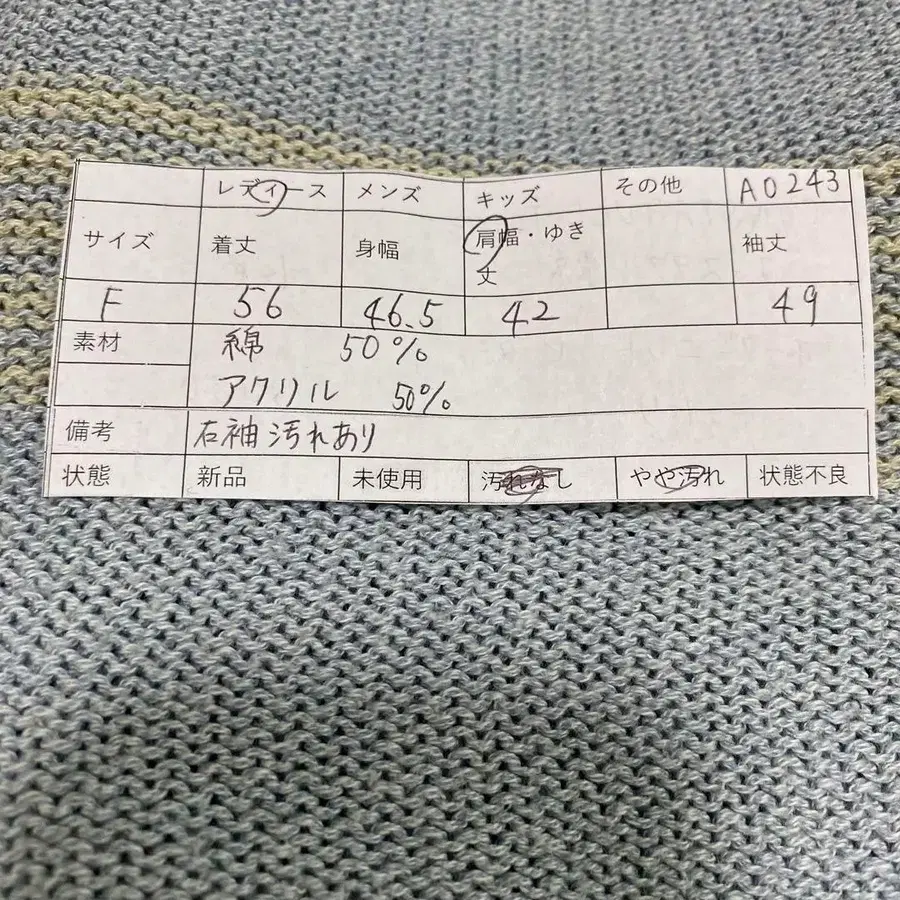 レディース メンズ キッズ その他 A0243
サイズ 着丈 身幅 肩幅・ゆき丈 袖丈
F 56 46.5 42 49
素材 綿 50%
アクリル 50%
備考 右袖汚れあり
状態 新品 未使用 汚れなし やや汚れ 状態不良